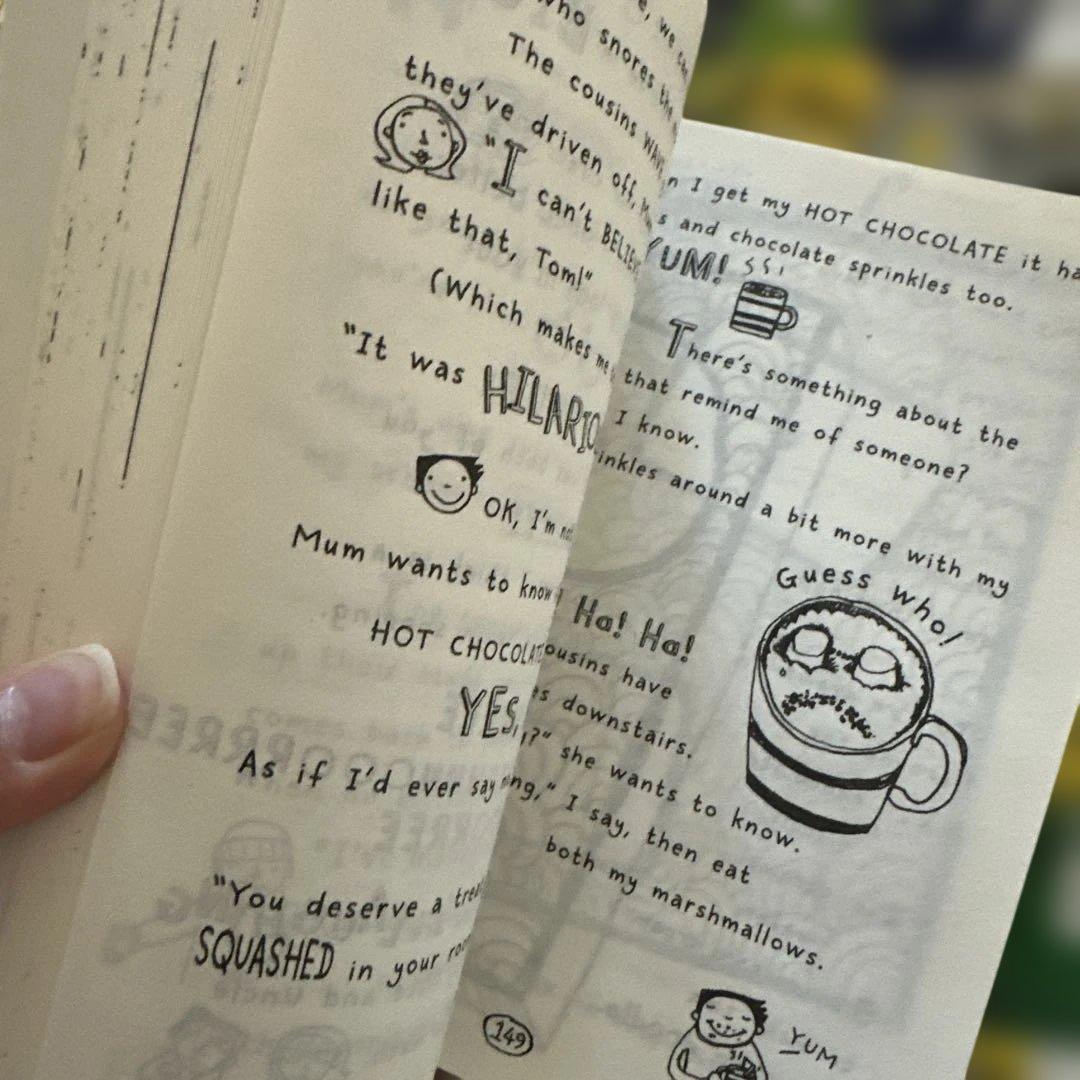 who snores the
The cousins WAVE
they've driven off,
"I can't
like that, Tom!"
(Which makes me
"It was
OK, I'm
Mum wants to know
HOT
YES,
As if I'd ever say
"You deserve a
SQUASHED in your
I get my HOT CHOCOLATE it
and chocolate sprinkles too.
YUM!
There's something about the
that remind me of someone?
I know.
around a bit more with my
Guess who!
Ha! Ha!
have
downstairs.
she wants to know.
I say, then eat
both my marshmallows.
149
YUM